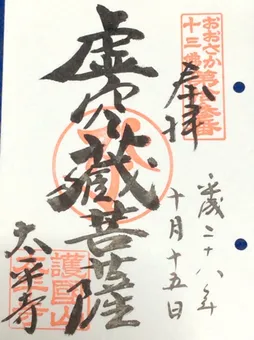 おおさか
十三佛
奉拝
平成二十八年
十月十五日
虚空蔵菩薩
太平寺
護國山